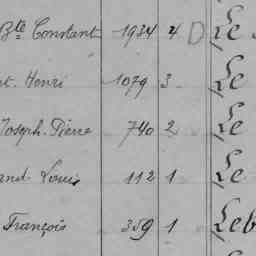 Bte Constant 1934 4 D Le
Henri 1079 3 Le
Joseph Pierre 740 2 Le
and Louis 112 1 Le
François 359 1 Leb